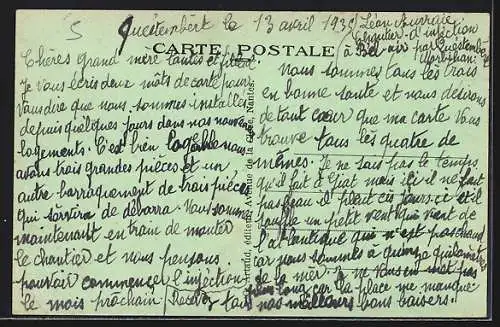 5 Questembert le 13 avril 193
Léon
d'injection
à Bel-air par Questembert
Morbihan
CARTE POSTALE
Chères grand mère tantes et
Je vous écris deux mots de carte pour
vous dire que nous sommes installés
depuis quelques jours dans nos nouveaux
logements. C'est bien logeable nous
avons trois grandes pièces et un
autre barraquement de trois pièces
qui servira de débarra. Nous sommes
maintenant en train de monter
le chantier et nous pensons
pouvoir commencer l'injection
le mois prochain. Recevez
nous sommes tous les trois
en bonne santé et nous désirons
de tout cœur que ma carte vous
trouve tous les quatre de
mêmes. Je ne sais pas le temps
qu'il fait à Giat mais ici il ne fait
pas beau il pleut ces jours ci et il
souffle un petit vent qui vient de
l'atlantique qui n'est pas chaud
car nous sommes à quinze quilomètres
de la mer. Je ne vous en met pas
plus long car la place me manque
tous nos meilleurs bons baisers.
Artaud, éditeur, Avenue de la Nantes.